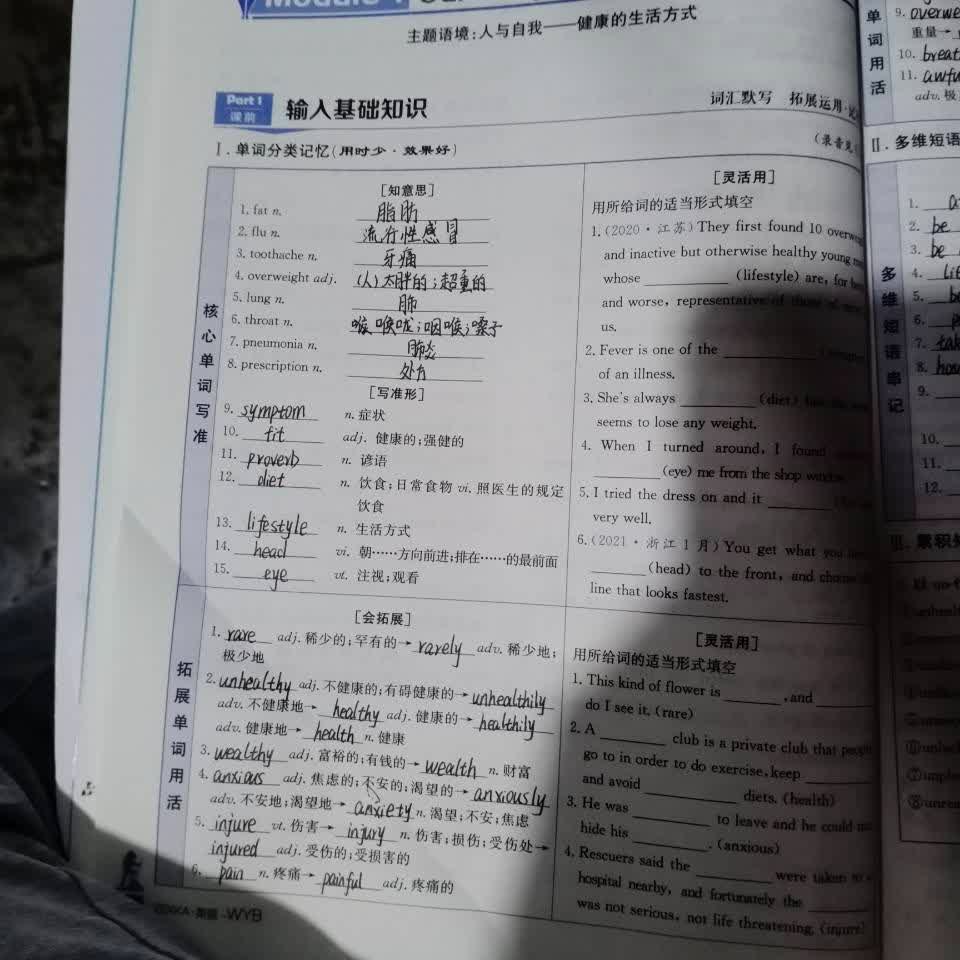 主题语境:人与自我——健康的生活方式
Part 1
课前
输入基础知识
词汇默写 拓展运用
Ⅰ.单词分类记忆(用时少·效果好)
核心单词写准
[知意思]
1. fat n. 脂肪
2. flu n. 流行性感冒
3. toothache n. 牙痛
4. overweight adj. (人)太胖的;超重的
5. lung n. 肺
6. throat n. 喉,喉咙;咽喉;嗓子
7. pneumonia n. 肺炎
8. prescription n. 处方
[写准形]
9. symptom n. 症状
10. fit adj. 健康的;强健的
11. proverb n. 谚语
12. diet n. 饮食;日常食物 vi. 照医生的规定
饮食
13. lifestyle n. 生活方式
14. head vi. 朝……方向前进;排在……的最前面
15. eye vt. 注视;观看
[灵活用]
用所给词的适当形式填空
1.(2020·江苏) They first found 10
and inactive but otherwise healthy young
whose ______ (lifestyle) are, for
and worse, representative of those of
us.
2. Fever is one of the ______
of an illness.
3. She's always ______ (diet) but
seems to lose any weight.
4. When I turned around, I found
______ (eye) me from the shop window.
5. I tried the dress on and it ______
very well.
6.(2021·浙江1月) You get what you
______ (head) to the front, and choose
line that looks fastest.
拓展单词用活
[会拓展]
1. rare adj. 稀少的;罕有的→ rarely adv. 稀少地;
极少地
2. unhealthy adj. 不健康的;有碍健康的→ unhealthily
adv. 不健康地→ healthy adj. 健康的→ healthily
adv. 健康地→ health n. 健康
3. wealthy adj. 富裕的;有钱的→ wealth n. 财富
4. anxious adj. 焦虑的;不安的;渴望的→ anxiously
adv. 不安地;渴望地→ anxiety n. 渴望;不安;焦虑
5. injure vt. 伤害→ injury n. 伤害;损伤;受伤处→
injured adj. 受伤的;受损害的
6. pain n. 疼痛→ painful adj. 疼痛的
[灵活用]
用所给词的适当形式填空
1. This kind of flower is ______, and ______
do I see it. (rare)
2. A ______ club is a private club that people
go to in order to do exercise, keep ______
and avoid ______ diets. (health)
3. He was ______ to leave and he could not
hide his ______. (anxious)
4. Rescuers said the ______ were taken to a
hospital nearby, and fortunately the ______
was not serious, not life threatening. (injure)
WYB
单词用活
9.
重量→
10.
11.
adv. 极
Ⅱ.多维短语
多维短语串记
1.
2. be
3. be
4.
5.
6.
7.
8.
9.
10.
11.
12.